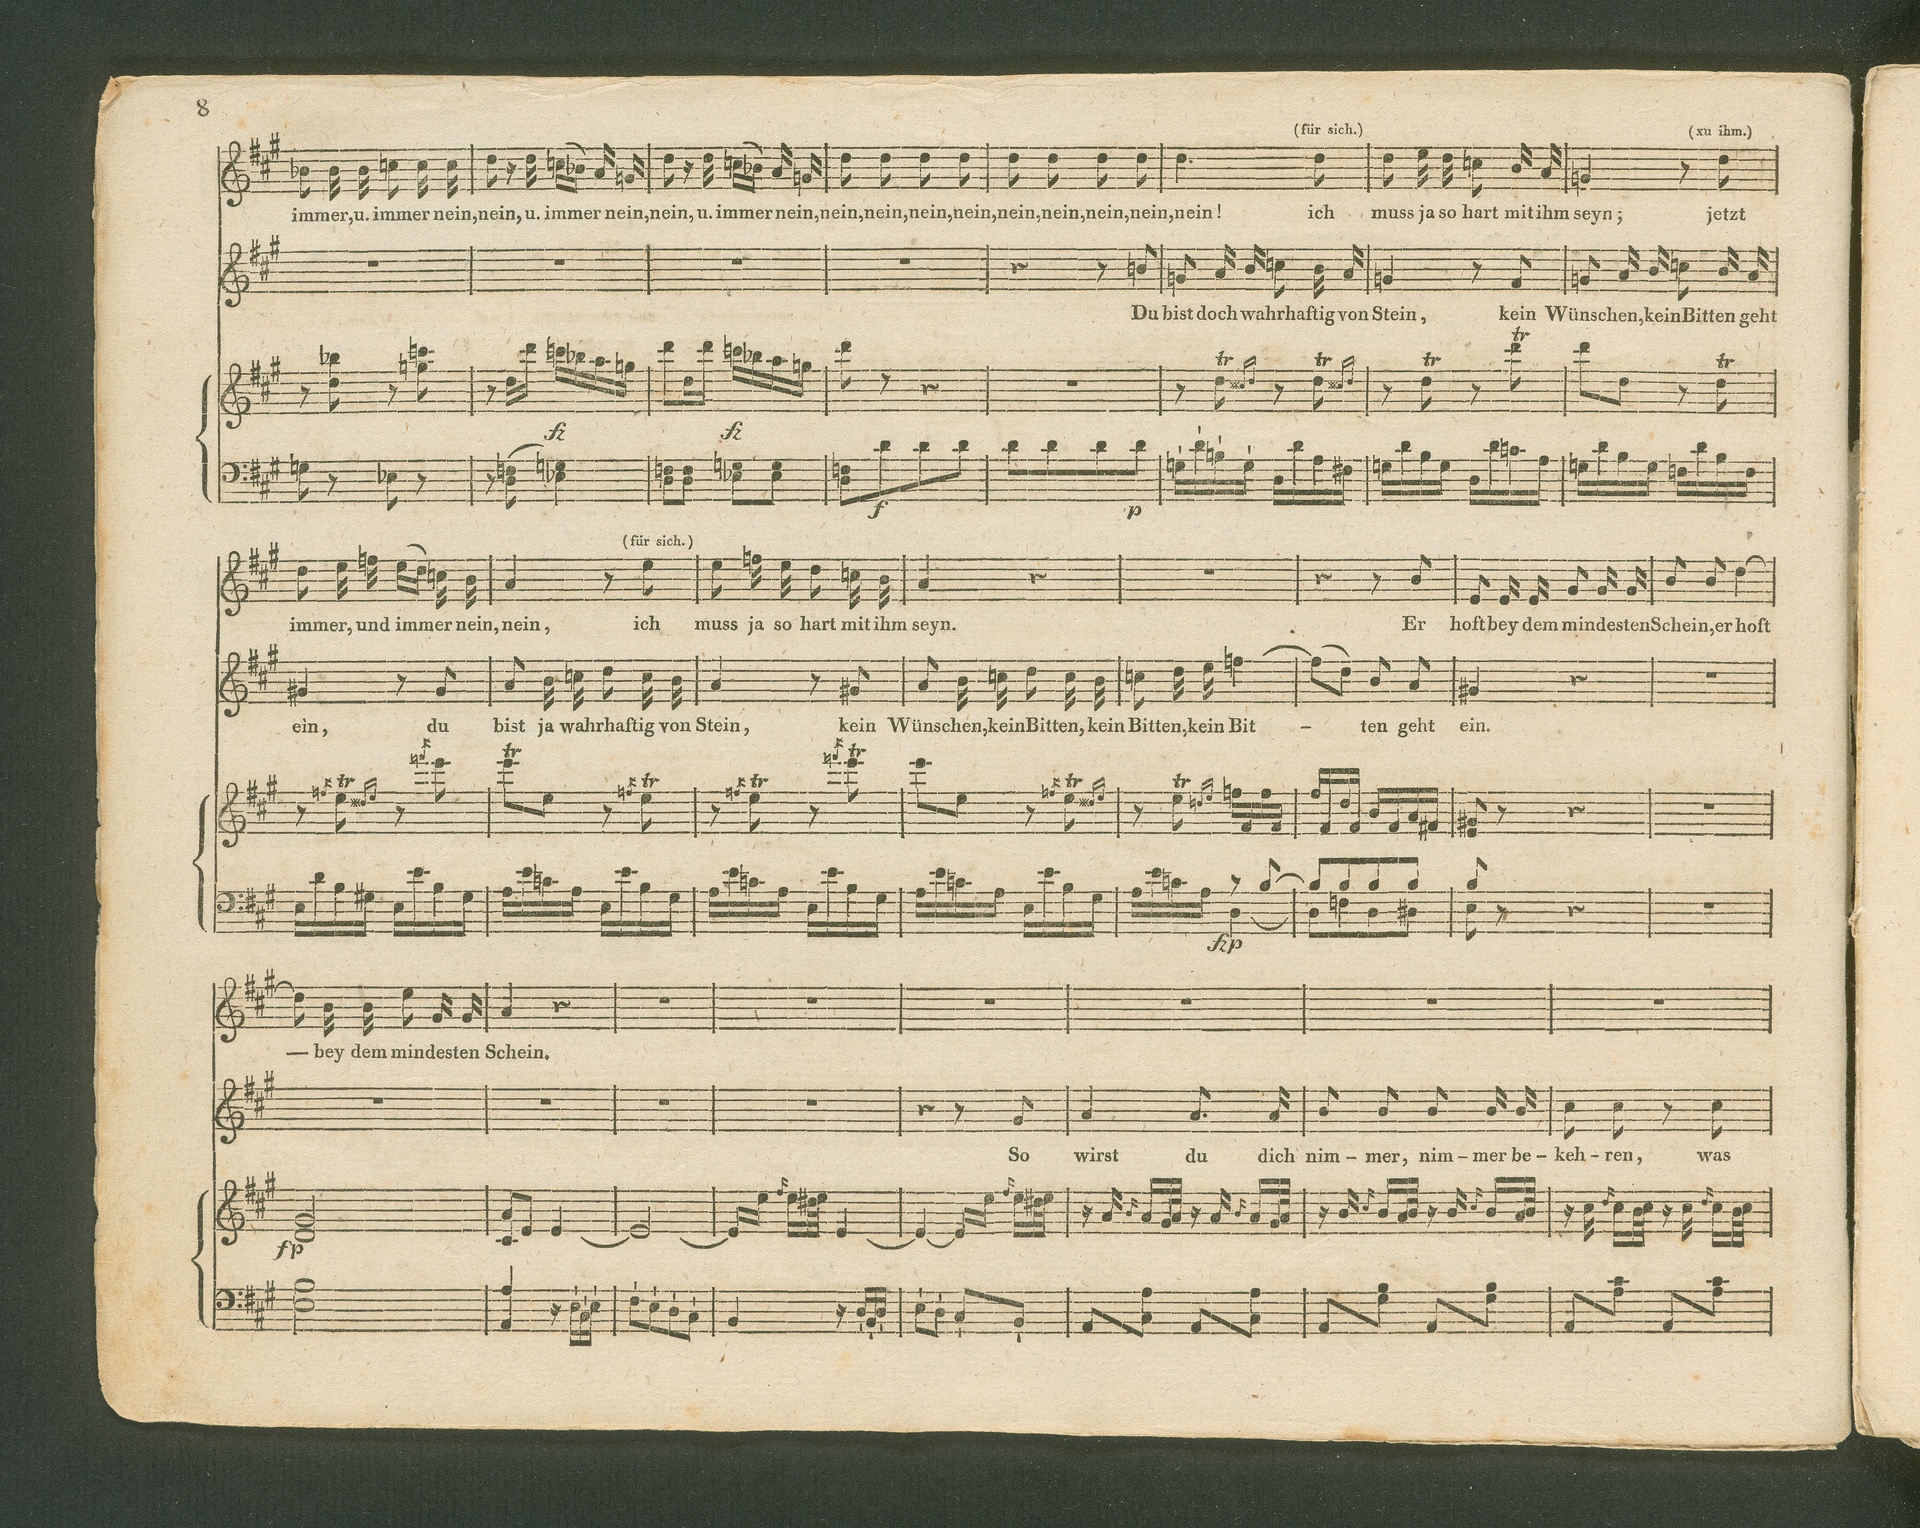 8
(für sich.) (xu ihm.)
immer, u. immer nein, nein, u. immer nein, nein, u. immer nein, nein, nein, nein, nein, nein, nein, nein, nein, nein! ich muss ja so hart mit ihm seyn; jetzt
Du bist doch wahrhaftig von Stein, kein Wünschen, kein Bitten geht
tr tr tr tr tr
fz fz
f p
(für sich.)
immer, und immer nein, nein, ich muss ja so hart mit ihm seyn. Er hoft bey dem mindesten Schein, er hoft
ein, du bist ja wahrhaftig von Stein, kein Wünschen, kein Bitten, kein Bitten, kein Bit – ten geht ein.
tr tr tr tr tr tr tr
fzp
— bey dem mindesten Schein.
So wirst du dich nim – mer, nim – mer be – keh – ren, was
fp